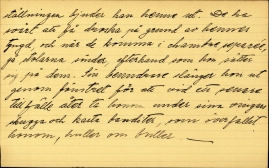 ställningen bjuder han henne ut. De ha
svårt att få droska på grund av hennes
tyngd och när de komma i chambre separée,
gå stolarna sönder efterhand som hon sätter
sig på dem. Sin benvana slänger hon ut
genom fönstret för att vid ett senare
tillfälle åter ta honom under sina
skugga och kasta banditer, som överfallet
honom, huller om buller